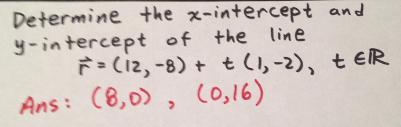 Determine the x-intercept and
y-intercept of the line
r⃗ = (12, -8) + t (1, -2), t ∈ ℝ
Ans: (8,0) , (0,16)